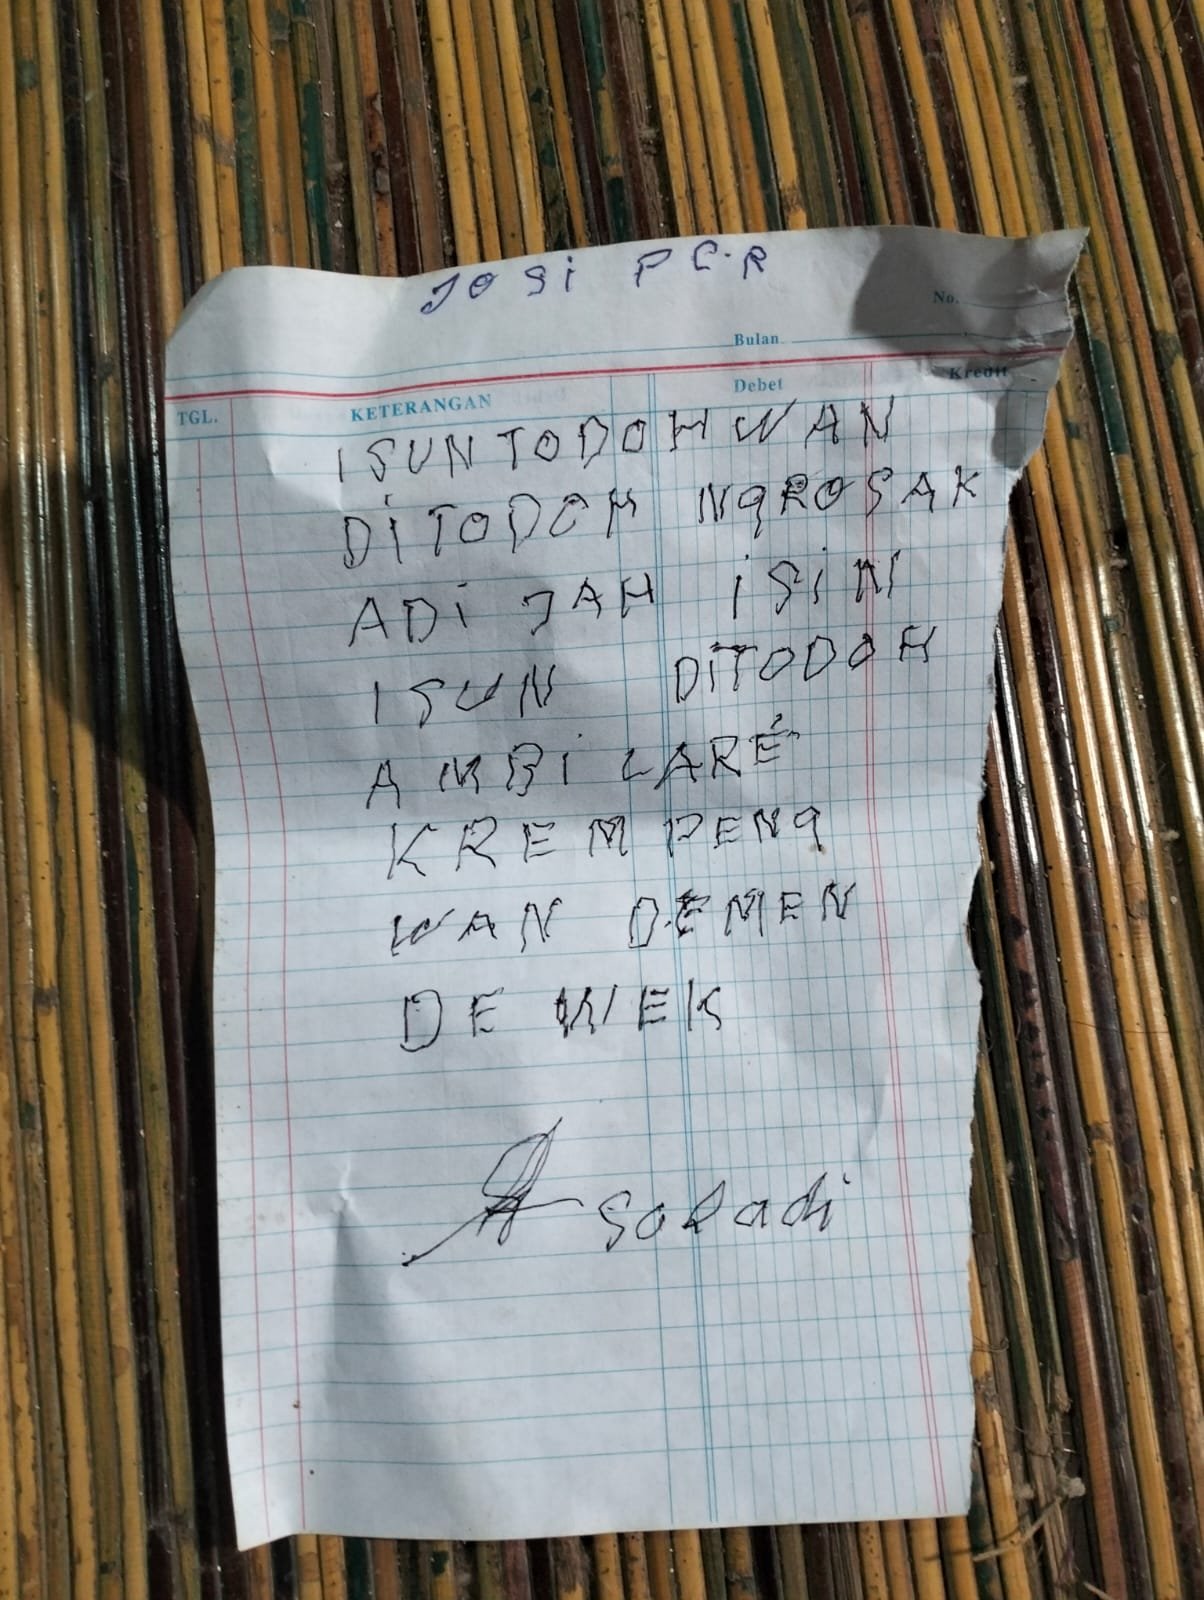 JOSi P C.R
No.
Bulan
TGL. KETERANGAN Debet Kredit
ISUN TODOH WAN
DiTODOH NGROSAK
ADi JAH iSiN
ISUN DiTODOH
AMBi LARÉ
KREMPENG
WAN DEMEN
DEWEK
SoRadi